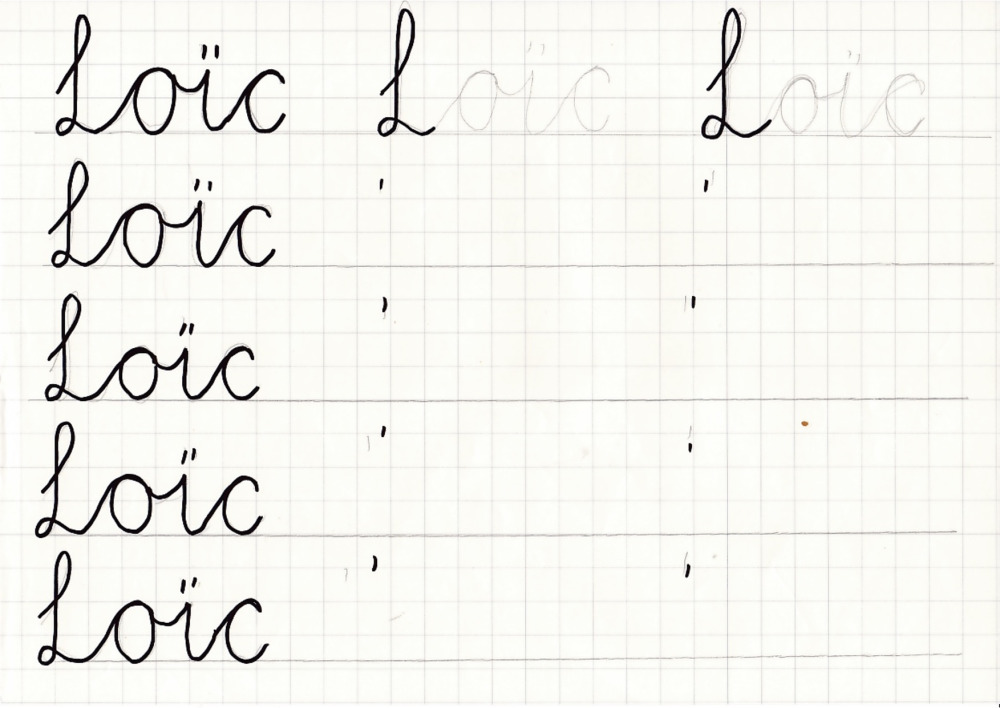 Loïc Loïc Loïc
Loïc
Loïc
Loïc
Loïc